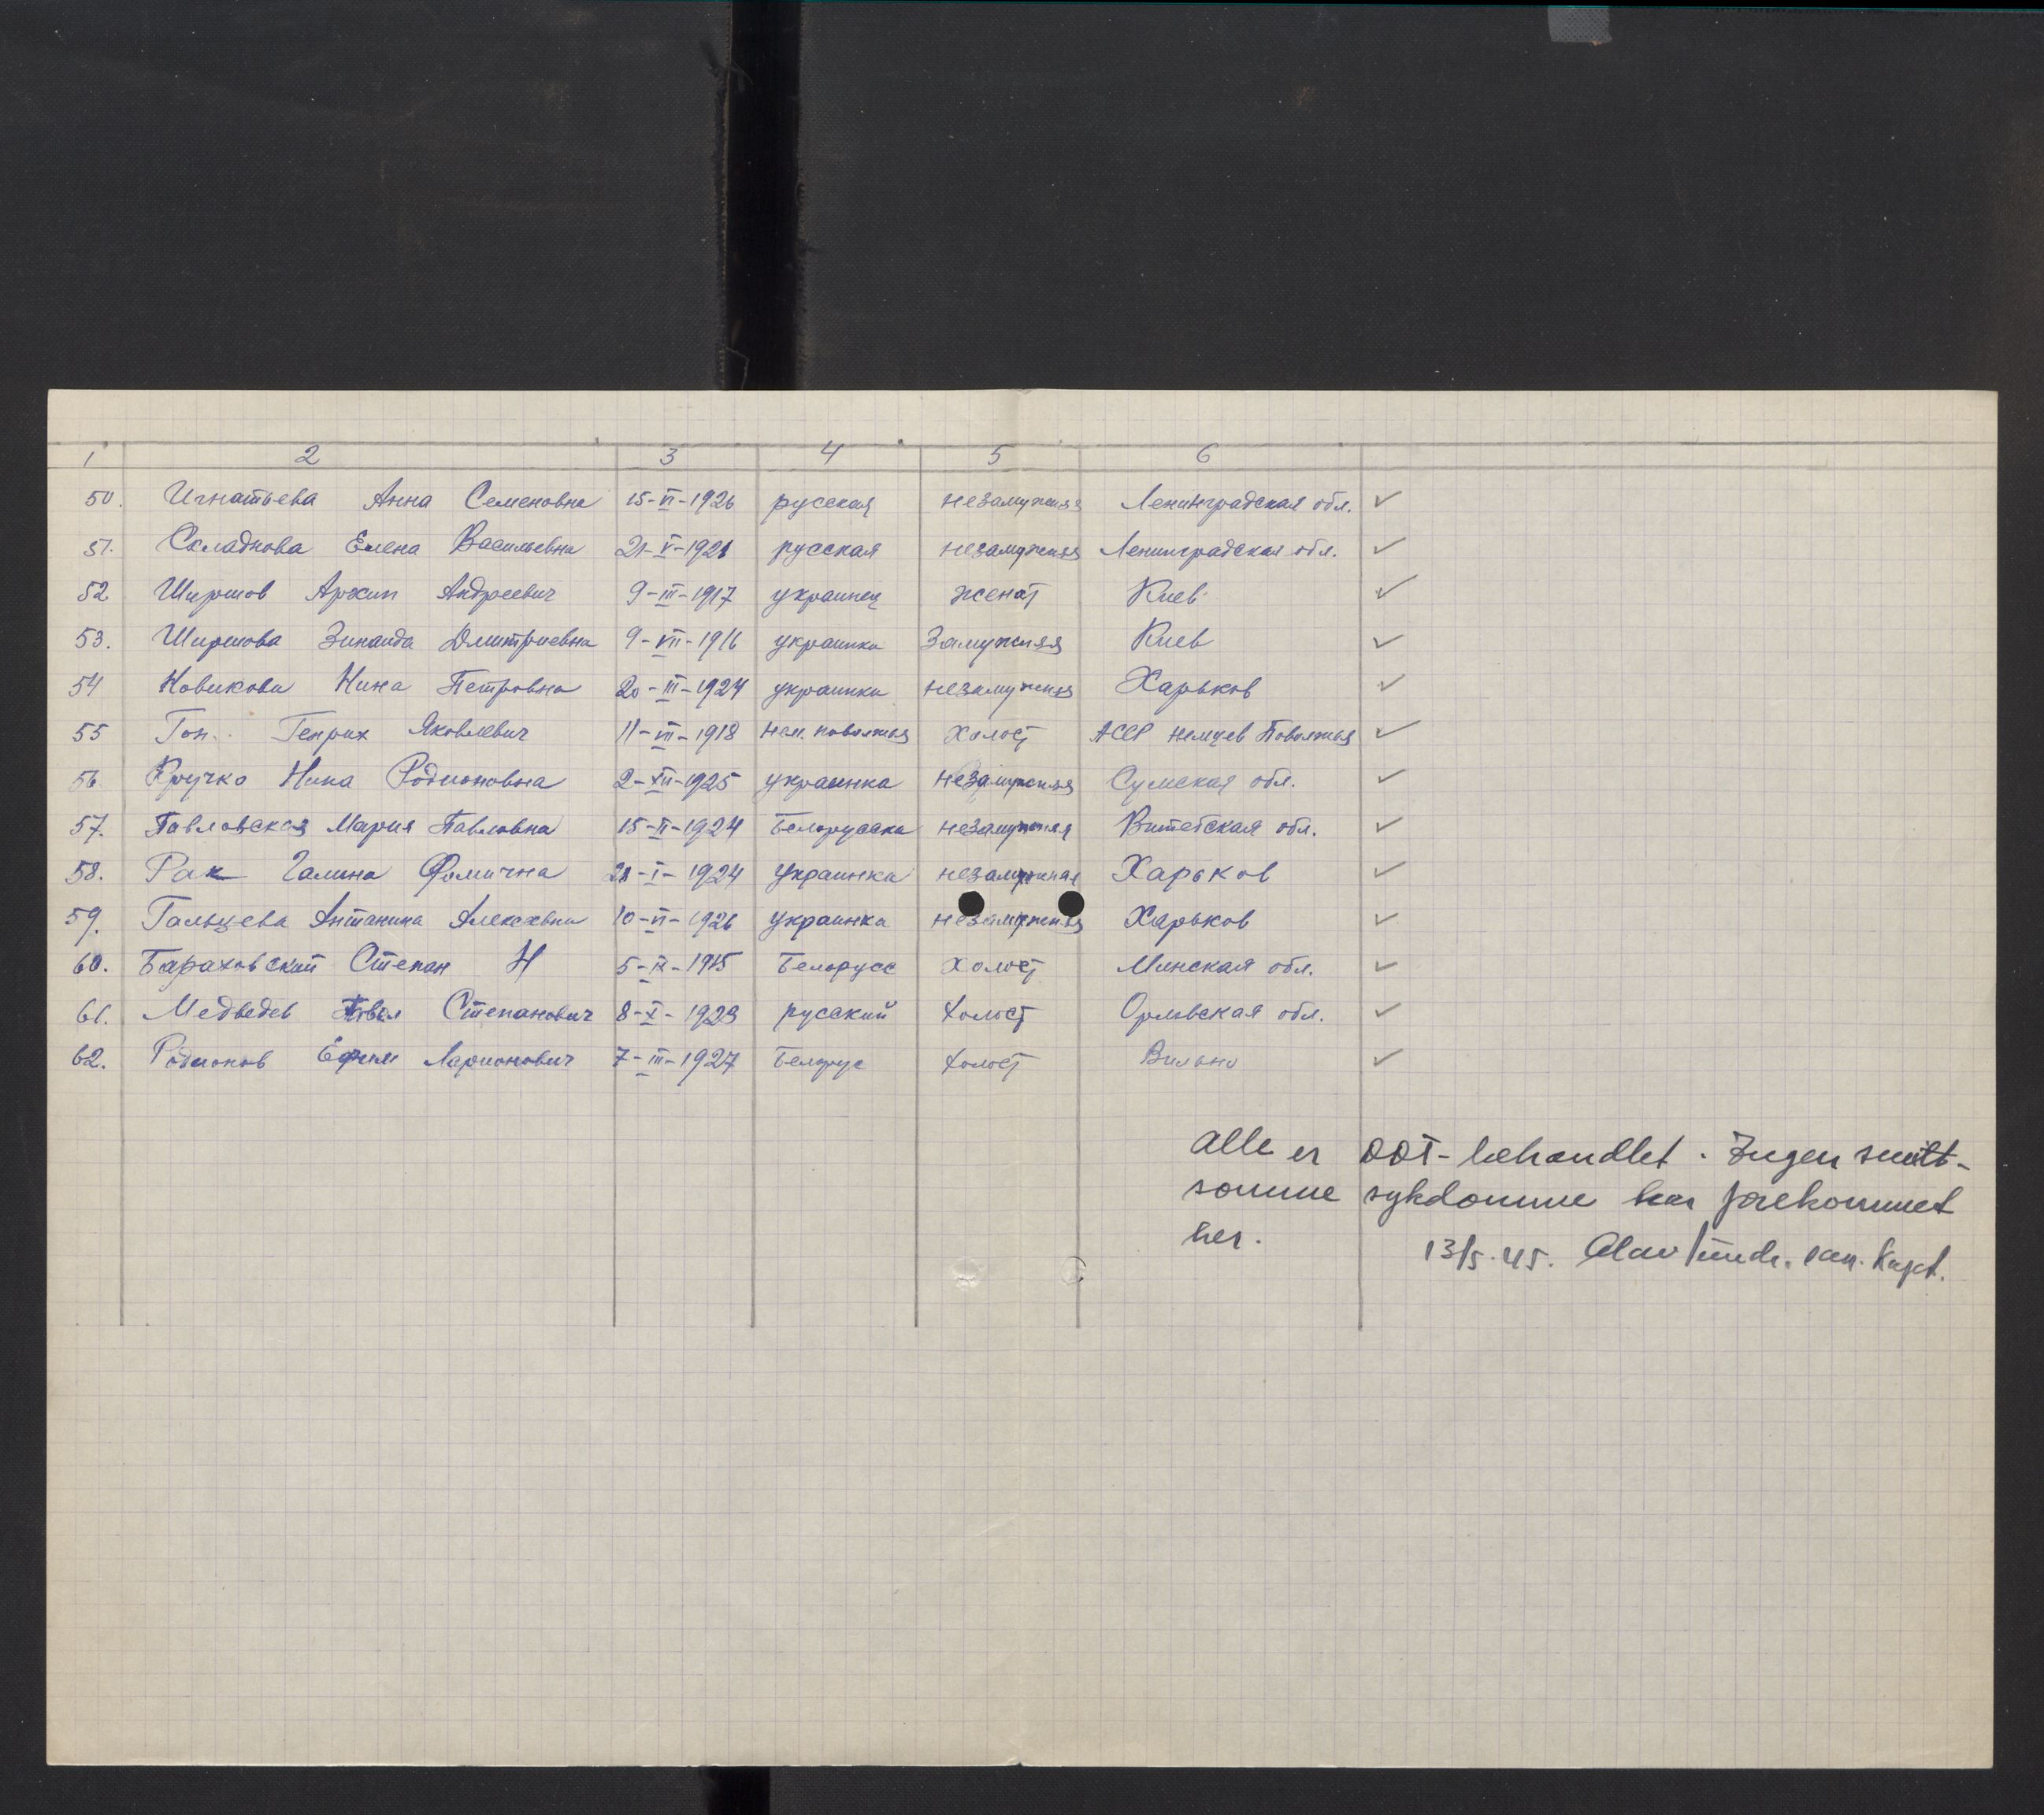 1 2 3 4 5 6
50. Игнатьева Анна Семеновна 15-VI-1926 русская незамужняя Ленинградская обл. ✓
51. Складнова Елена Васильевна 21-V-1921 русская незамужняя Ленинградская обл. ✓
52 Ширшов Архип Андреевич 9-III-1917 украинец женат Киев ✓
53. Ширшова Зинаида Дмитриевна 9-VII-1916 украинка Замужняя Киев ✓
54 Новикова Нина Петровна 20-III-1924 украинка незамужняя Харьков ✓
55 Гон. Генрих Яковлевич 11-VII-1918 Нем. поволжья Холост АССР Немцев Поволжья ✓
56. Кручко Нина Родионовна 2-XII-1925 украинка незамужняя Сумская обл. ✓
57. Павловская Мария Павловна 15-II-1924 Белорусска незамужняя Витебская обл. ✓
58. Рак Галина Фомична 21-I-1924 Украинка незамужняя Харьков ✓
59. Гальцева Антанина Алексевна 10-VI-1926 Украинка незамужняя Харьков ✓
60. Бараховский Степан Н 5-IX-1915 Белорусс Холост Минская обл. ✓
61. Медведев Павел Степанович 8-X-1923 русский Холост Орловская обл. ✓
62. Родионов Ефим Ларионович 7-III-1927 Белорус Холост Вильно ✓
Alle er DDT-behandlet. Ingen smitt-
somme sykdomme har forekommet
her.
13/5.45. Olav san. kapt.